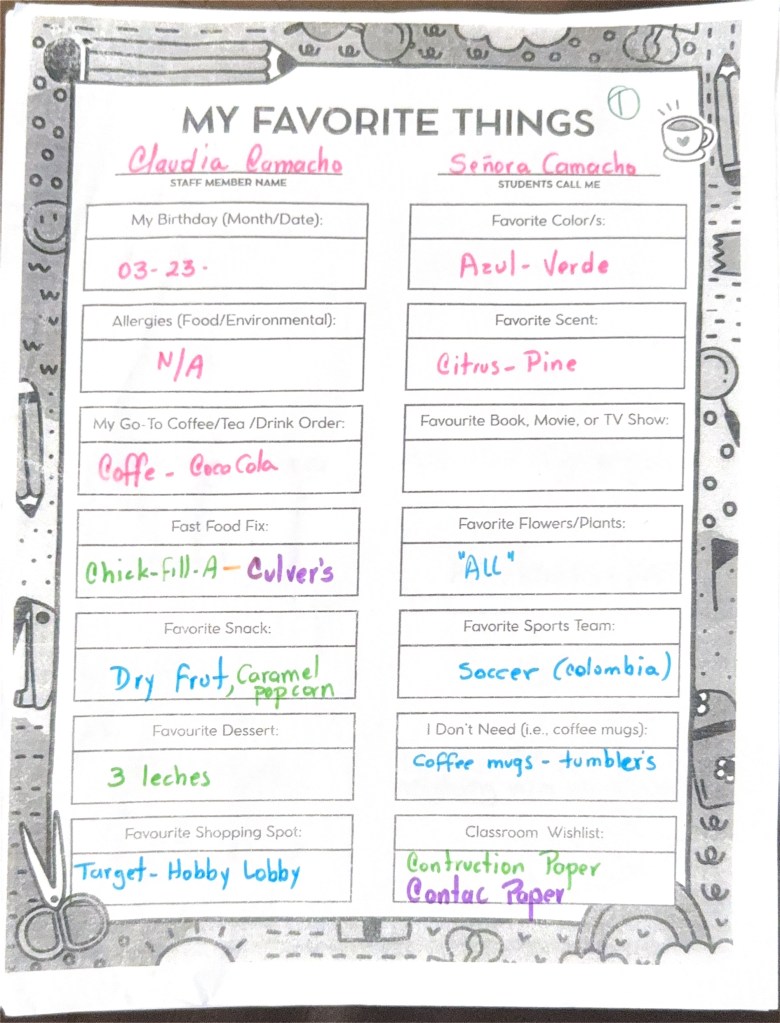 ①
MY FAVORITE THINGS
Claudia Camacho
STAFF MEMBER NAME
Señora Camacho
STUDENTS CALL ME
My Birthday (Month/Date):
03-23.
Favorite Color/s:
Azul - Verde
Allergies (Food/Environmental):
N/A
Favorite Scent:
Citrus - Pine
My Go-To Coffee/Tea /Drink Order:
Coffe - CocaCola
Favourite Book, Movie, or TV Show:
Fast Food Fix:
Chick-fill-A - Culver's
Favorite Flowers/Plants:
"ALL"
Favorite Snack:
Dry frut, Caramel
popcorn
Favorite Sports Team:
Soccer (colombia)
Favourite Dessert:
3 leches
I Don't Need (i.e., coffee mugs):
Coffee mugs - tumbler's
Favourite Shopping Spot:
Target - Hobby Lobby
Classroom Wishlist:
Contruction Paper
Contac Paper